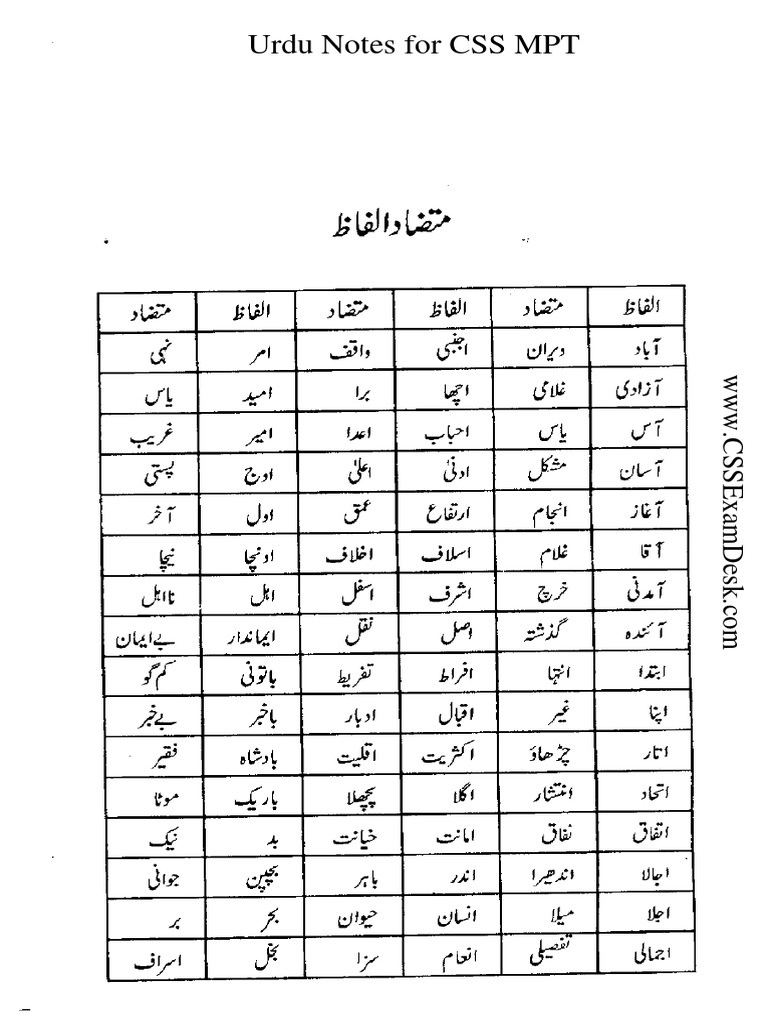 Urdu Notes for CSS MPT
متضاد الفاظ
الفاظ متضاد الفاظ متضاد الفاظ متضاد
آباد ویران اجنبی واقف امر نہی
آزادی غلامی اچھا برا امید یاس
آس یاس احباب اعدا امیر غریب
آسان مشکل ادنیٰ اعلیٰ اوج پستی
آغاز انجام ارتفاع عمق اول آخر
آقا غلام اسلاف اخلاف اونچا نیچا
آمدنی خرچ اشرف اسفل اہل نااہل
آئندہ گذشتہ اصل نقل ایماندار بے ایمان
ابتدا انتہا افراط تفریط باتونی کم گو
اپنا غیر اقبال ادبار باخبر بے خبر
اتار چڑھاؤ اکثریت اقلیت بادشاہ فقیر
اتحاد انتشار اگلا پچھلا باریک موٹا
اتفاق نفاق امانت خیانت بد نیک
اجالا اندھیرا اندر باہر بچپن جوانی
اجلا میلا انسان حیوان بحر بر
اجمالی تفصیلی انعام سزا بخل اسراف
www.CSSExamDesk.com